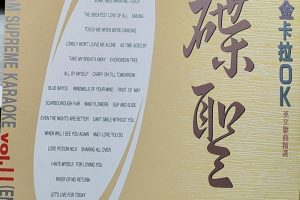 SOMETIMES WHEN WE TOUCH
THE GREATEST LOVE OF ALL SAILING
TOUCH ME WHEN WE'RE DANCING
LONELY WON'T LEAVE ME ALONE AS TIME GOES BY
TAKE MY BREATH AWAY EVERGREEN TREE
ALL BY MYSELF CARRY ON TILL TOMORROW
BLUE BAYOU WINDMILLS OF YOUR MIND FIRST OF MAY
SCARBOROUGH FAIR WIND FLOWERS SLIP AND SLIDE
EVEN THE NIGHTS ARE BETTER CAN'T SMILE WITHOUT YOU
WHEN WILL I SEE YOU AGAIN AND I LOVE YOU SO
LOVE POTION NO.9 SHARING ALL OVER
I HATE MYSELF FOR LOVING YOU
RIVER OF NO RETURN
LET'S LIVE FOR TODAY
SUPREME KARAOKE
vol.11
碟聖
金卡拉OK
英文歌曲精選